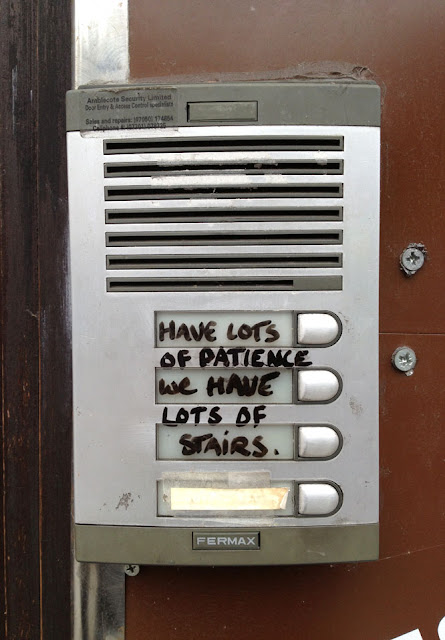 Amblecote Security Limited
Door Entry & Access Control Specialists
Sales and repairs:
HAVE LOTS
OF PATIENCE
WE HAVE
LOTS OF
STAIRS.
FERMAX